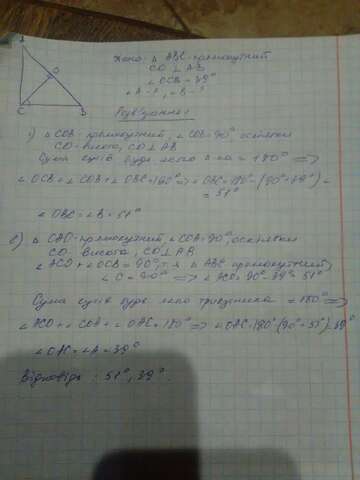 A
O
C
B
Дано: △ ABC-прямокутний
CO ⊥ AB
∠OCB = 39°
∠A - ?, ∠B - ?
Розв'язання:
1) △ COB-прямокутний, ∠COB=90°, оскільки
CO-висота, CO⊥AB
Сума кутів будь якого = 180° =>
∠OCB+∠COB+∠OBC=180° => ∠OBC=180°-(90°+39°)=
= 51°
∠OBC=∠B=51°
2) △ CAO-прямокутний, ∠COA=90°, оскільки
CO висота, CO⊥AB
∠ACO+∠OCB=90°, т.я △ ABC прямокутний,
∠C=90° => ∠ACO=90°-39°=51°
Сума кутів будь якого трикутника = 180° =>
∠ACO+∠COA+∠OAC=180° => ∠OAC=180°-(90°+51°)=39°
∠OAC=∠A=39°
Відповідь: 51°, 39°.